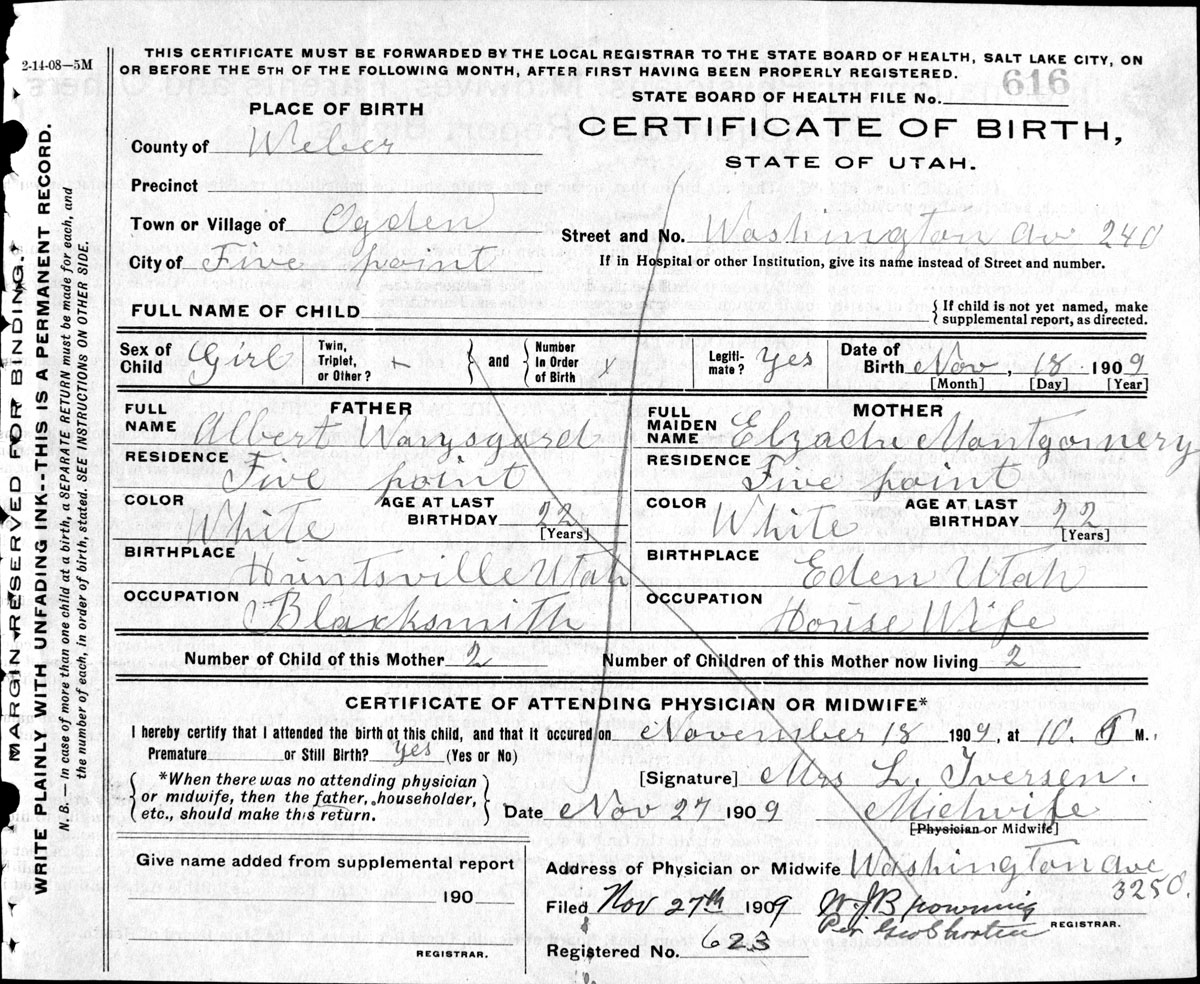 2-14-08—5M
THIS CERTIFICATE MUST BE FORWARDED BY THE LOCAL REGISTRAR TO THE STATE BOARD OF HEALTH, SALT LAKE CITY, ON
OR BEFORE THE 5TH OF THE FOLLOWING MONTH, AFTER FIRST HAVING BEEN PROPERLY REGISTERED.
STATE BOARD OF HEALTH FILE No. 616
PLACE OF BIRTH
CERTIFICATE OF BIRTH,
STATE OF UTAH.
County of Weber
Precinct
Town or Village of Ogden
Street and No. Washington Av 240
City of Five point
If in Hospital or other Institution, give its name instead of Street and number.
FULL NAME OF CHILD
{ If child is not yet named, make
supplemental report, as directed.
Sex of Child Girl
Twin, Triplet, or Other? +
and
Number In Order of Birth x
Legiti-mate? yes
Date of Birth Nov. 18 1909
[Month] [Day] [Year]
FATHER
FULL NAME Albert Wangsgard
RESIDENCE Five point
COLOR White
AGE AT LAST BIRTHDAY 22
[Years]
BIRTHPLACE Huntsville Utah
OCCUPATION Blacksmith
MOTHER
FULL MAIDEN NAME Montgomery
RESIDENCE Five point
COLOR White
AGE AT LAST BIRTHDAY 22
[Years]
BIRTHPLACE Eden Utah
OCCUPATION House Wife
Number of Child of this Mother 2
Number of Children of this Mother now living 2
CERTIFICATE OF ATTENDING PHYSICIAN OR MIDWIFE*
I hereby certify that I attended the birth of this child, and that it occured on November 18 1909, at 10. P M.
Premature or Still Birth? yes (Yes or No)
*When there was no attending physician
or midwife, then the father, householder,
etc., should make this return.
[Signature] Mrs L. Iversen.
Date Nov 27 1909
Midwife
[Physician or Midwife]
Give name added from supplemental report
190
REGISTRAR.
Address of Physician or Midwife Washington ave
3250.
Filed Nov 27th 1909
W J Browning
Per Geo Shorten
REGISTRAR.
Registered No. 623
MARGIN RESERVED FOR BINDING.
WRITE PLAINLY WITH UNFADING INK--THIS IS A PERMANENT RECORD.
N. B. — In case of more than one child at a birth, a SEPARATE RETURN must be made for each, and
the number of each, in order of birth, stated. SEE INSTRUCTIONS ON OTHER SIDE.